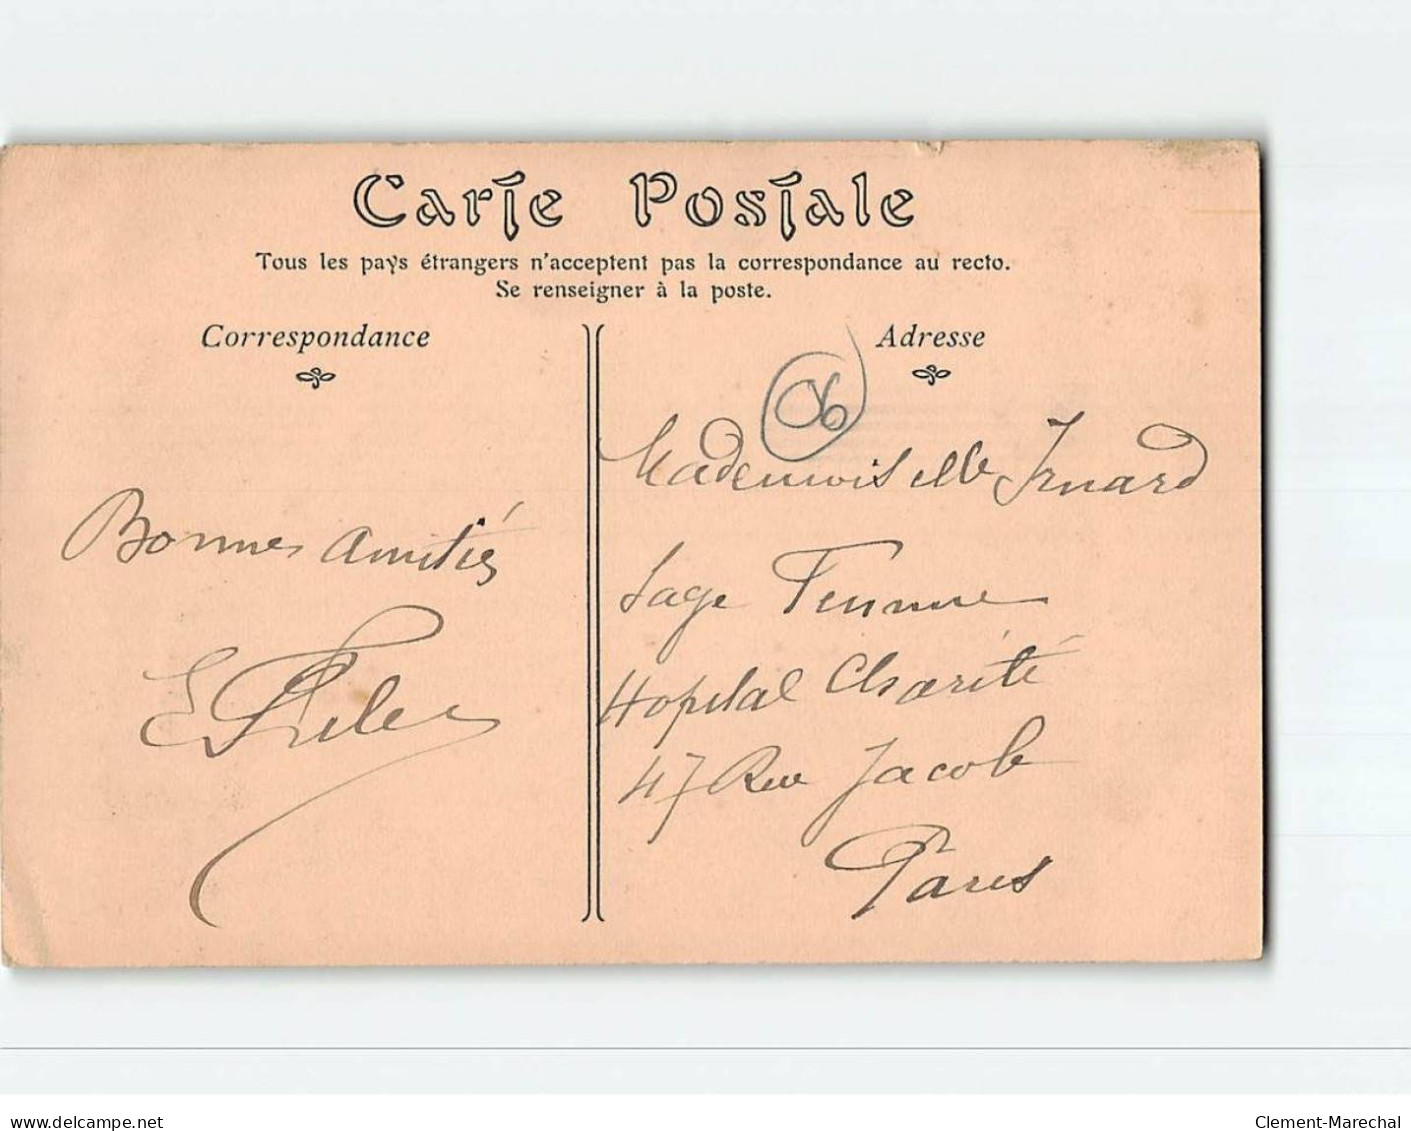 Carte Postale
Tous les pays étrangers n'acceptent pas la correspondance au recto.
Se renseigner à la poste.
Correspondance
Bonnes amitiés
E
Adresse
06
Mademoiselle
Sage Femme
Hopital Charité
47 Rue Jacob
Paris
www.delcampe.net
Clement-Marechal